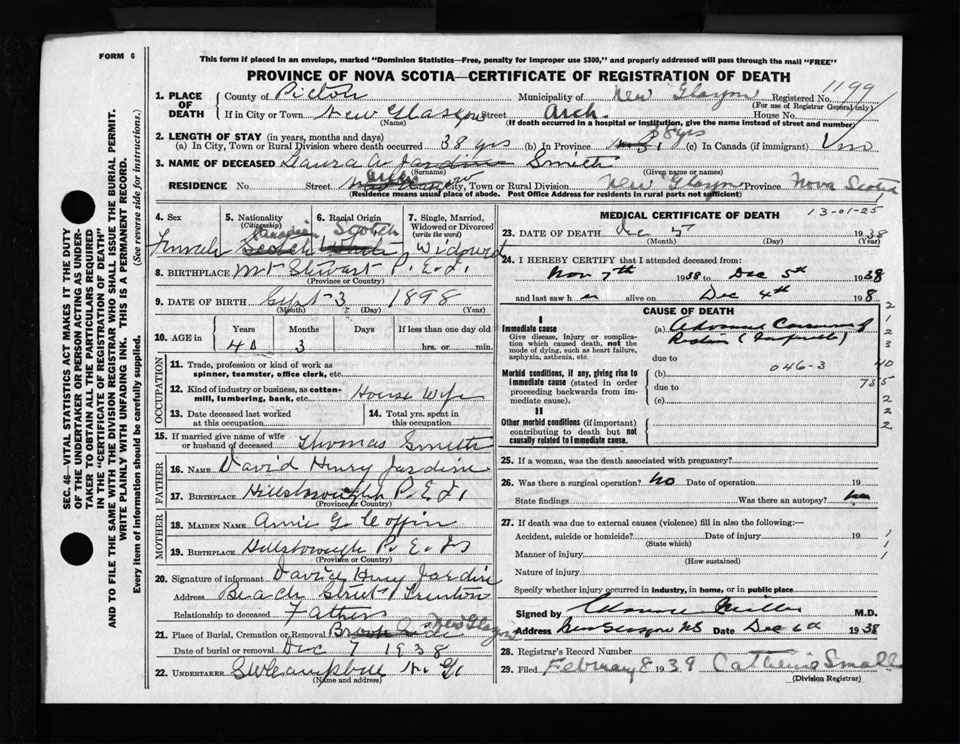 FORM 6
This form if placed in an envelope, marked "Dominion Statistics—Free, penalty for improper use $300," and properly addressed will pass through the mail "FREE"
PROVINCE OF NOVA SCOTIA—CERTIFICATE OF REGISTRATION OF DEATH
SEC. 46—VITAL STATISTICS ACT MAKES IT THE DUTY
OF THE UNDERTAKER OR PERSON ACTING AS UNDER-
TAKER TO OBTAIN ALL THE PARTICULARS REQUIRED
IN THE "CERTIFICATE OF REGISTRATION OF DEATH"
AND TO FILE THE SAME WITH THE DIVISION REGISTRAR WHO SHALL ISSUE THE BURIAL PERMIT.
WRITE PLAINLY WITH UNFADING INK. THIS IS A PERMANENT RECORD.
Every item of information should be carefully supplied. (See reverse side for instructions.)
1. PLACE OF DEATH
County of Pictou Municipality of New Glasgow Registered No. 1199
(For use of Registrar General only)
If in City or Town New Glasgow Street Arch. House No.
(Name) (If death occurred in a hospital or institution, give the name instead of street and number)
2. LENGTH OF STAY (in years, months and days)
(a) In City, Town or Rural Division where death occurred 38 yrs (b) In Province 38 yrs (c) In Canada (if immigrant)
3. NAME OF DECEASED Laura A. Jardine Smith
(Surname) (Given name or names)
RESIDENCE No. Street City, Town or Rural Division New Glasgow Province Nova Scotia
(Residence means usual place of abode. Post Office Addresses for residents in rural parts not sufficient)
4. Sex
Female
5. Nationality
(Citizenship)
Canadian
Scotch
6. Racial Origin
Scotch
White
7. Single, Married, Widowed or Divorced
(write the word)
Widowed
8. BIRTHPLACE Mt Stewart P.E.I.
(Province or Country)
9. DATE OF BIRTH Sept 3 1898
(Month) (Day) (Year)
10. AGE in Years Months Days If less than one day old
40 3 hrs. or min.
OCCUPATION
11. Trade, profession or kind of work as
spinner, teamster, office clerk, etc.
12. Kind of industry or business, as cotton-
mill, lumbering, bank, etc. House Wife
13. Date deceased last worked
at this occupation
14. Total yrs. spent in
this occupation
15. If married give name of wife
or husband of deceased Thomas Smith
FATHER
16. NAME David Henry Jardine
17. BIRTHPLACE Hillsborough P.E.I.
(Province or Country)
MOTHER
18. MAIDEN NAME Annie G. Coffin
19. BIRTHPLACE Hillsborough P.E.I.
(Province or Country)
20. Signature of informant David Henry Jardine
Address Beach Street Trenton
Relationship to deceased Father
21. Place of Burial, Cremation or Removal Brook Side New Glasgow
Date of burial or removal Dec 7 1938
22. UNDERTAKER S W Campbell N. G.
(Name and address)
MEDICAL CERTIFICATE OF DEATH
13-01-25
23. DATE OF DEATH Dec 5 1938
(Month) (Day) (Year)
24. I HEREBY CERTIFY that I attended deceased from:
Nov 7th 1938 to Dec 5th 1938
and last saw her alive on Dec 4th 1938
CAUSE OF DEATH
I
Immediate cause
Give disease, injury or complica-
tion which caused death, not the
mode of dying, such as heart failure,
asphyxia, asthenia, etc.
(a) Advanced Carcinoma of
Rectum
due to
046-3
Morbid conditions, if any, giving rise to
immediate cause (stated in order
proceeding backwards from im-
mediate cause).
(b)
due to
(c)
II
Other morbid conditions (if important)
contributing to death but not
causally related to immediate cause.
25. If a woman, was the death associated with pregnancy?
26. Was there a surgical operation? No Date of operation 19
State findings Was there an autopsy? No
27. If death was due to external causes (violence) fill in also the following:—
Accident, suicide or homicide? Date of injury 19
(State which)
Manner of injury
(How sustained)
Nature of injury
Specify whether injury occurred in industry, in home, or in public place
Signed by Miller M.D.
Address New Glasgow NS Date Dec 6th 1938
28. Registrar's Record Number
29. Filed February 8 1939 Catherine Small
(Division Registrar)